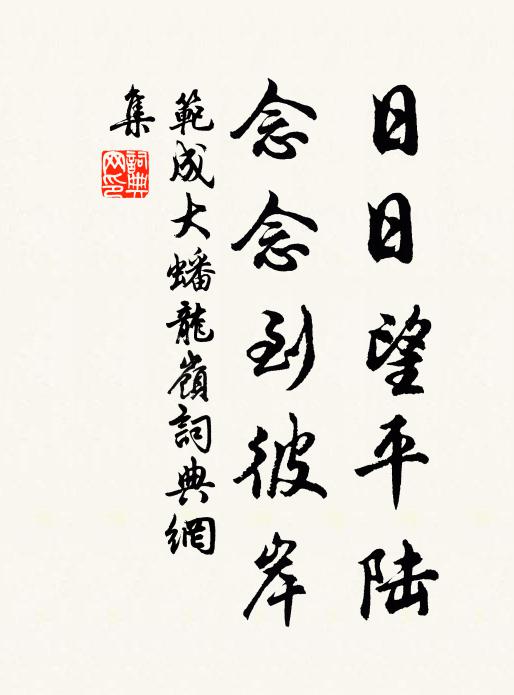 日日望平陆
念念到彼岸
範成大蟠龍嶺詞典網
集
詞典网印